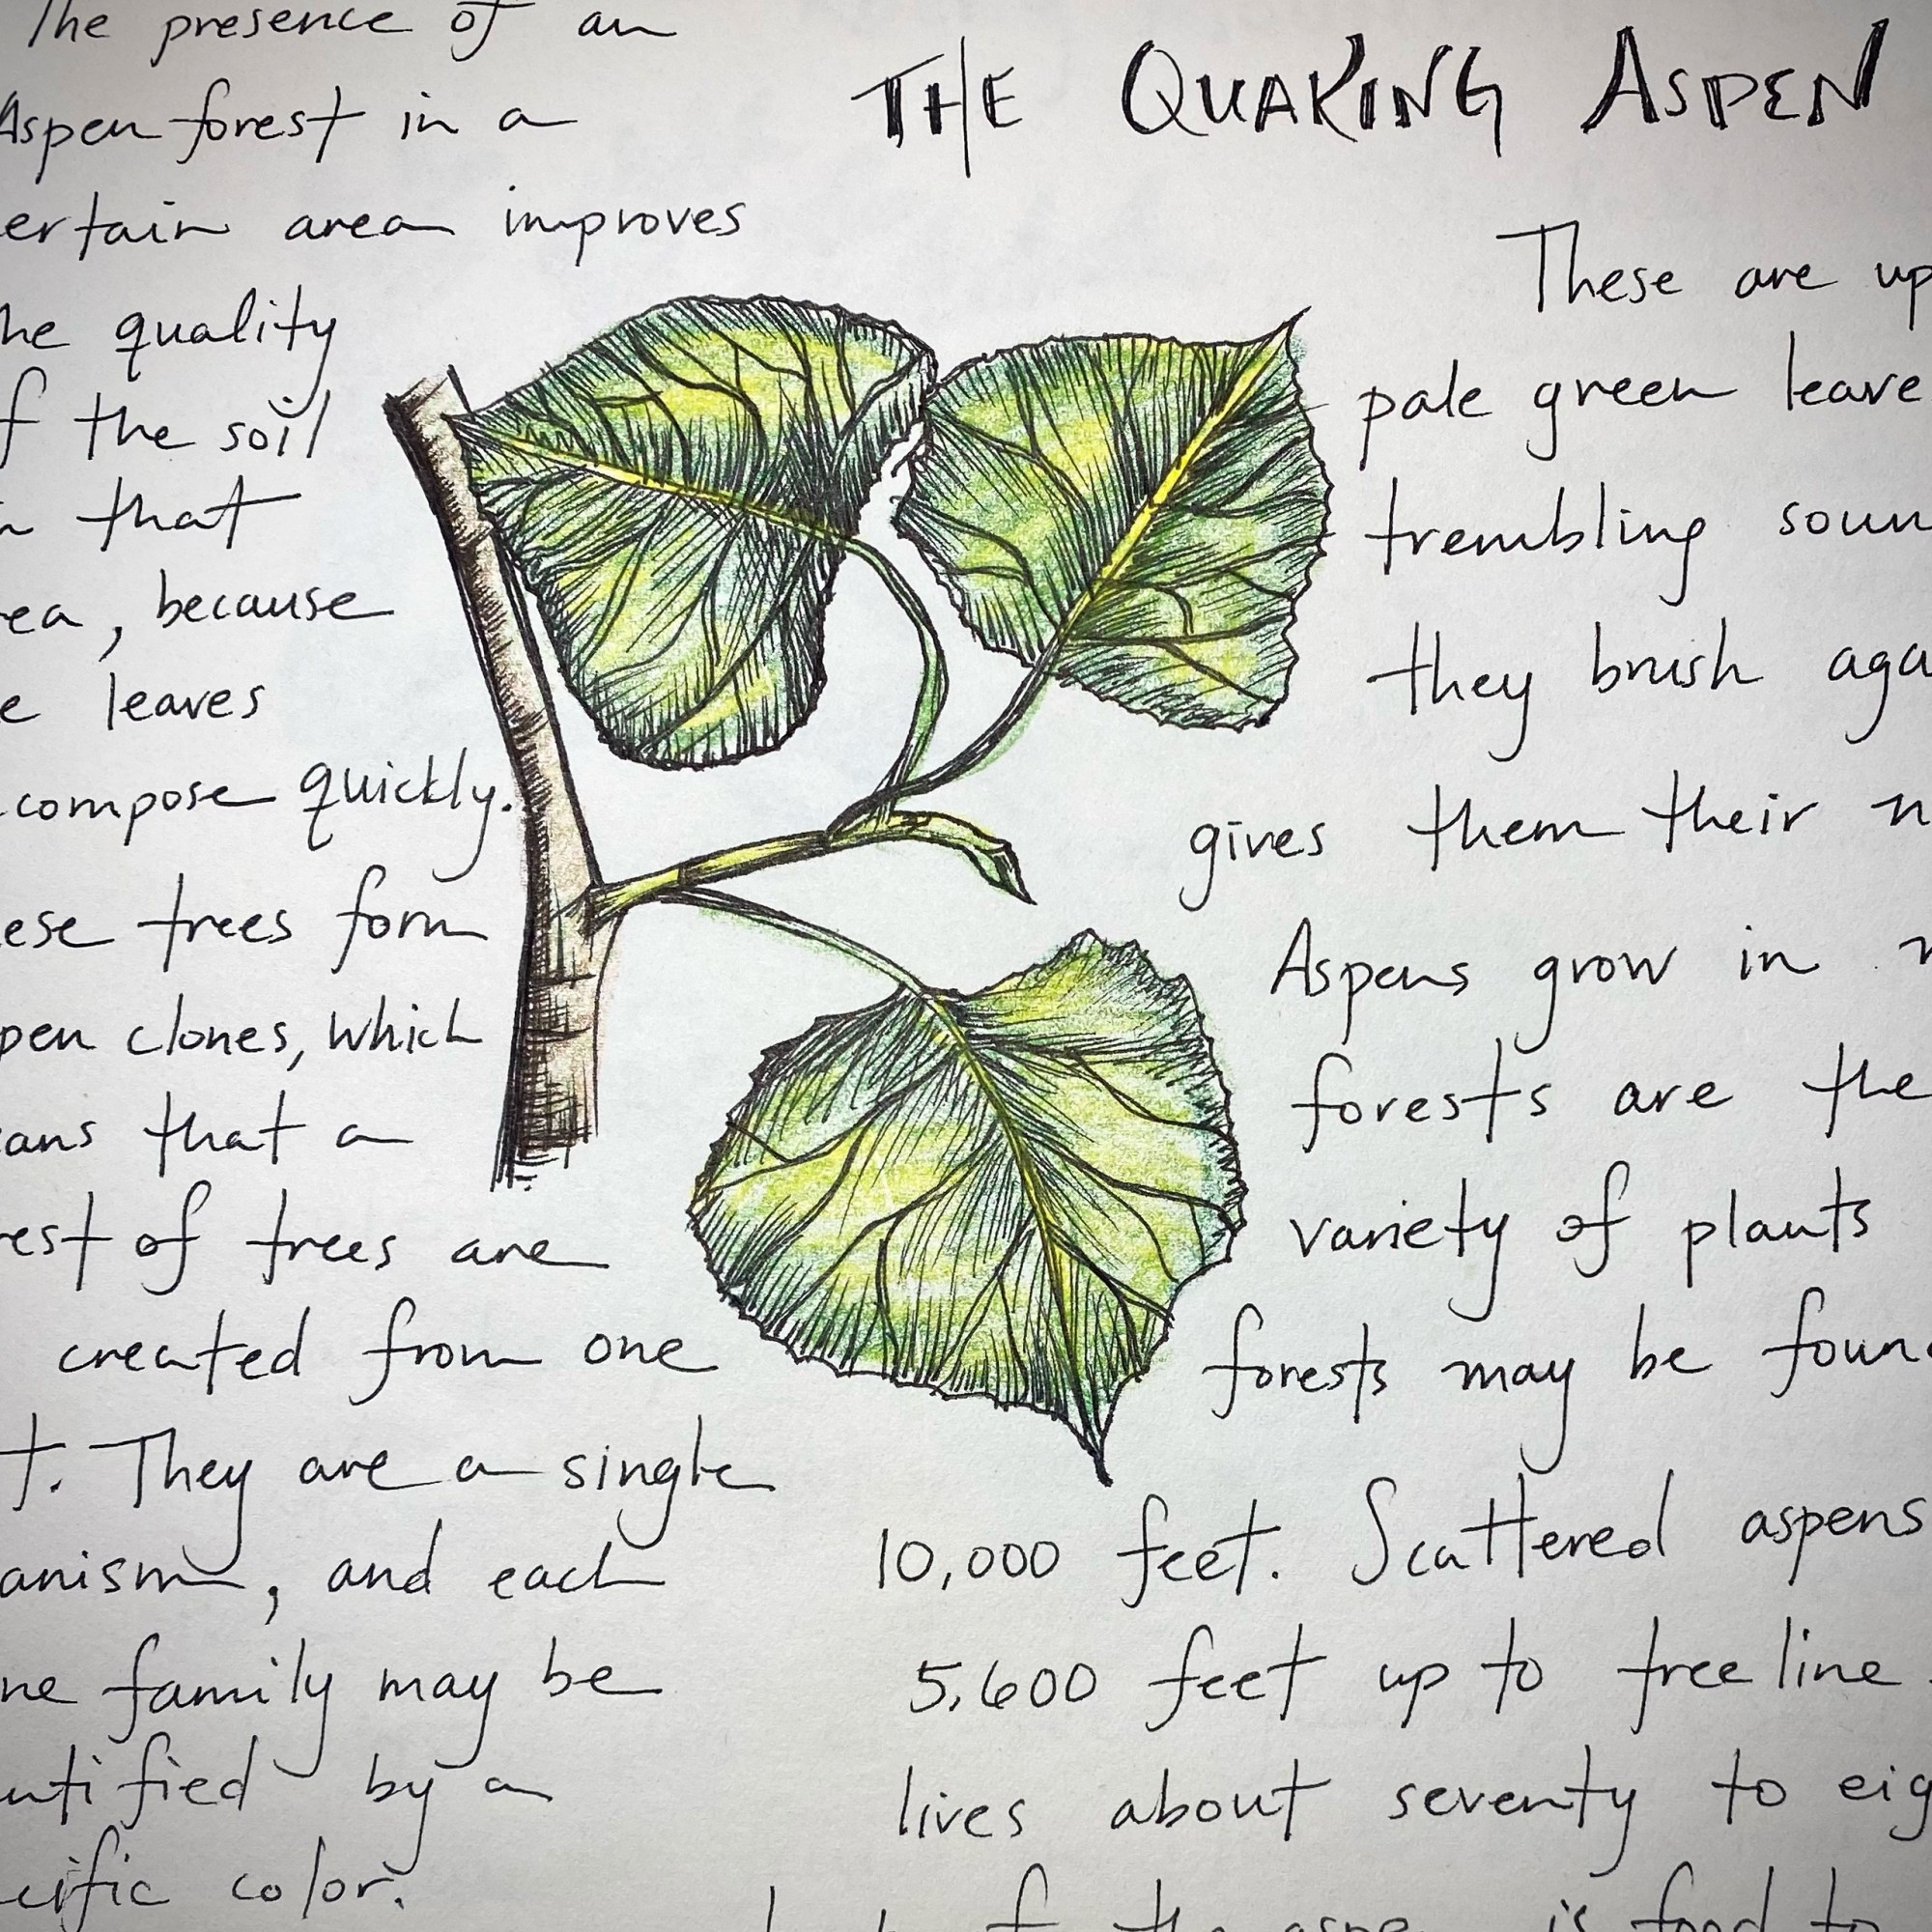 The presence of an
Aspen forest in a
ertain area improves
he quality
f the soil
n that
rea, because
e leaves
compose quickly.
ese trees form
pen clones, which
eans that a
rest of trees are
created from one
t. They are a single
anism, and each
ne family may be
ntified by a
cific color.
THE QUAKING ASPEN
These are up
pale green leave
trembling soun
they brush aga
gives them their n
Aspens grow in
forests are the
variety of plants
forests may be foun
10,000 feet. Scattered aspens
5,600 feet up to treeline.
lives about seventy to eig
of the aspe is food to